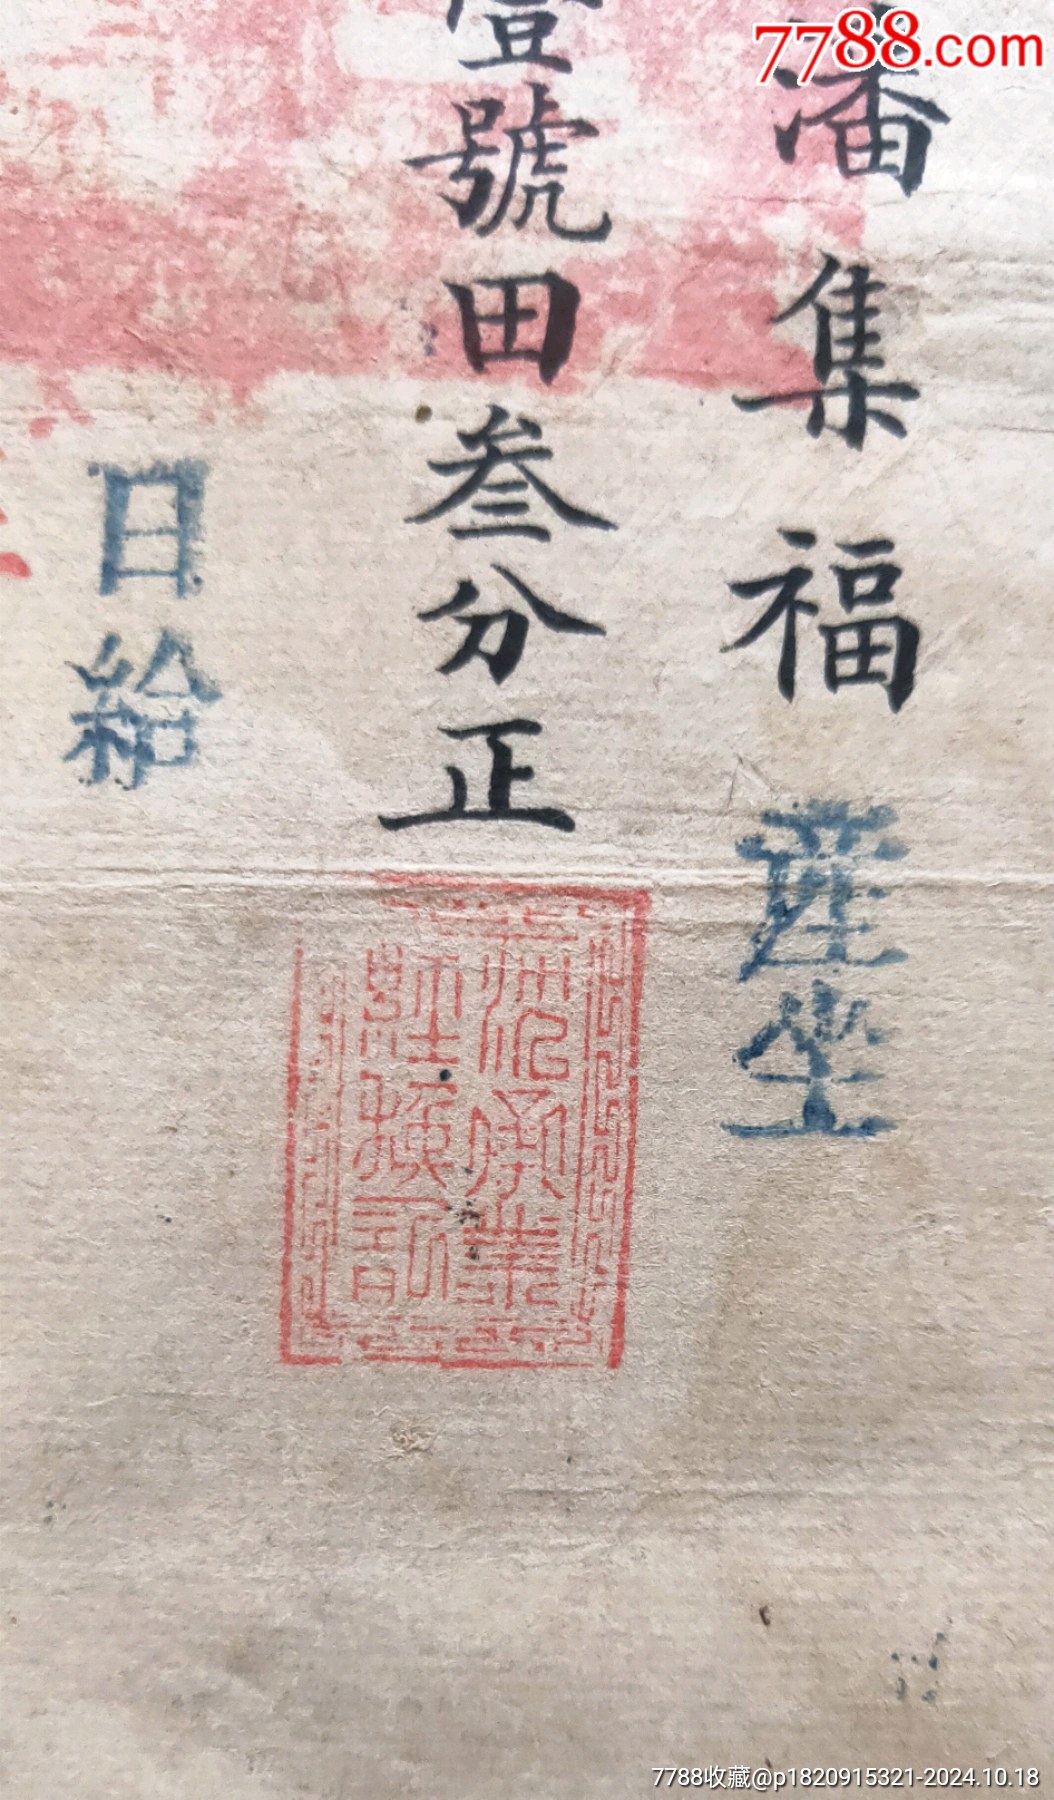 7788.com
潘集福産坐
壹號田叁分正
日給
7788收藏@p1820915321-2024.10.18